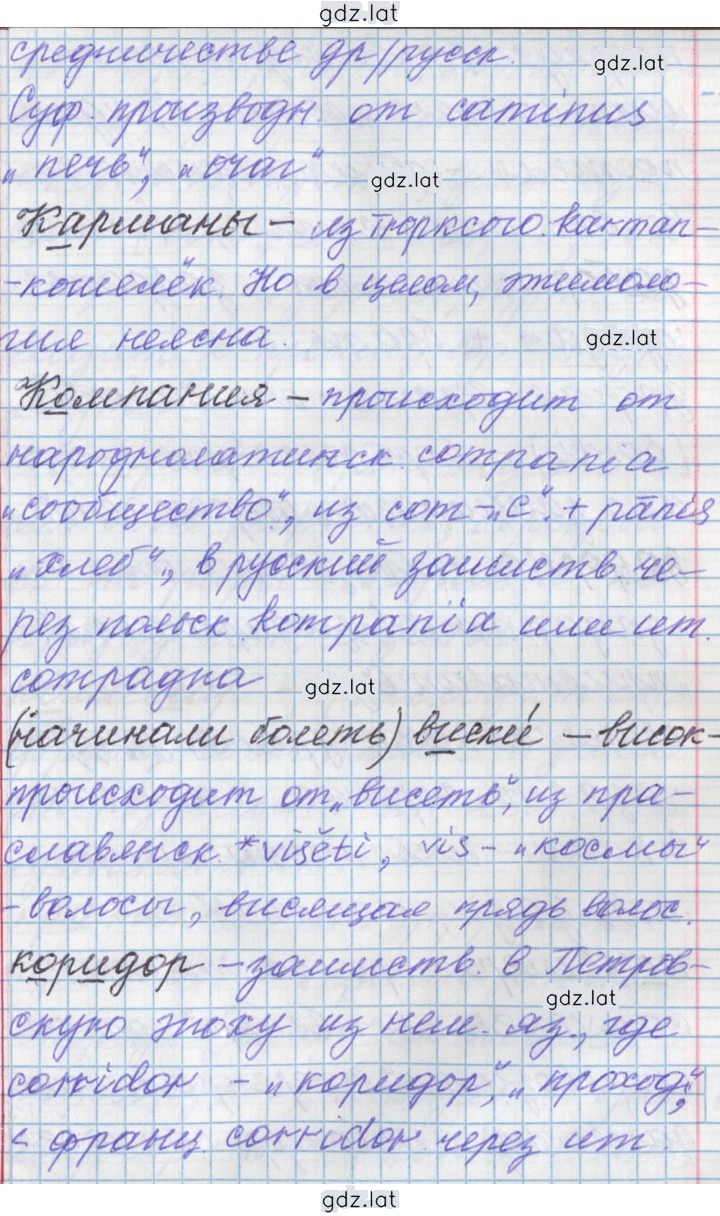 gdz.lat
средничестве др//русск.
gdz.lat
Суф. производн. от caminus
„печь“, „очаг“
gdz.lat
Карманы – из тюрксого kantan-
-кошелёк. Но в целом, этимоло-
гия неясна.
gdz.lat
Компания – происходит от
народнолатинск. compania
„сообщество“, из com-„с“. + pānis
„хлеб“, в русский заимств. че-
рез польск. kompania или ит.
compagna
gdz.lat
(начинали болеть) виски́ – висок-
происходит от „висеть“, из пра-
славянск. *višěti, vis- „космы“
-волосы, висящая прядь волос.
коридор – заимств. в Петров-
gdz.lat
скую эпоху из нем. яз., где
corridor – „коридор“, „проход“,
< франц. corridor через ит.
gdz.lat